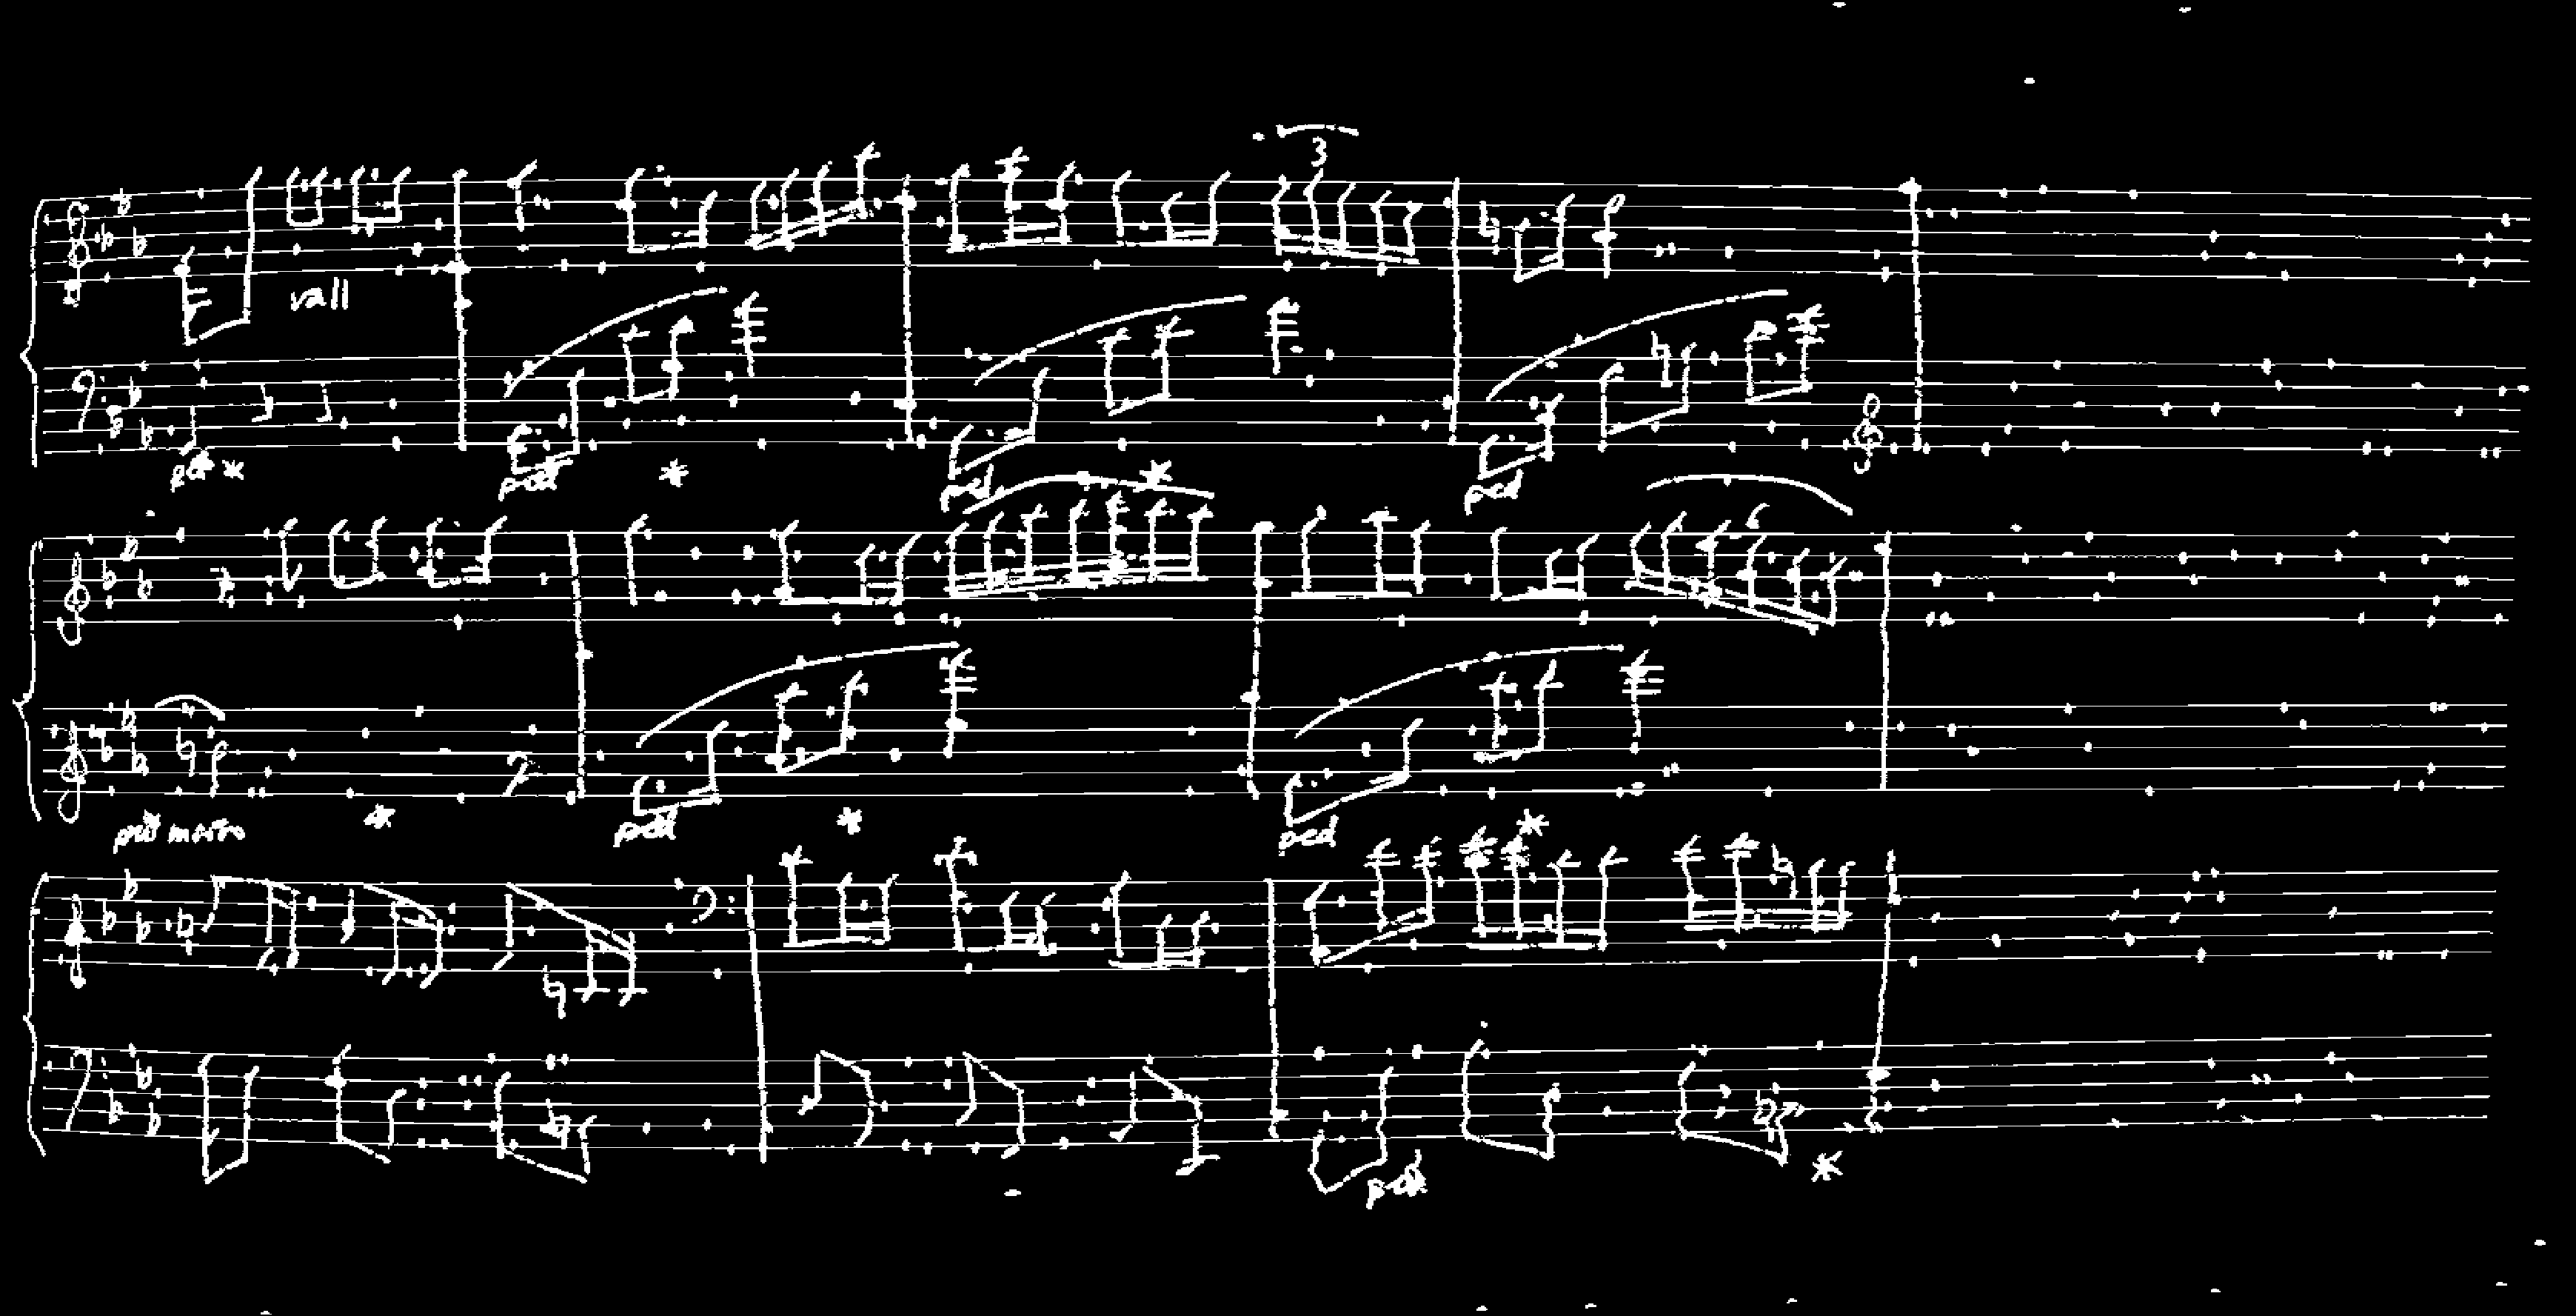 3
rall
ped *
ped *
ped *
ped
6
più mosso *
ped *
ped *
ped *